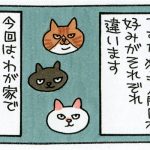 好みがそれぞれ
違います
今回はわが家で